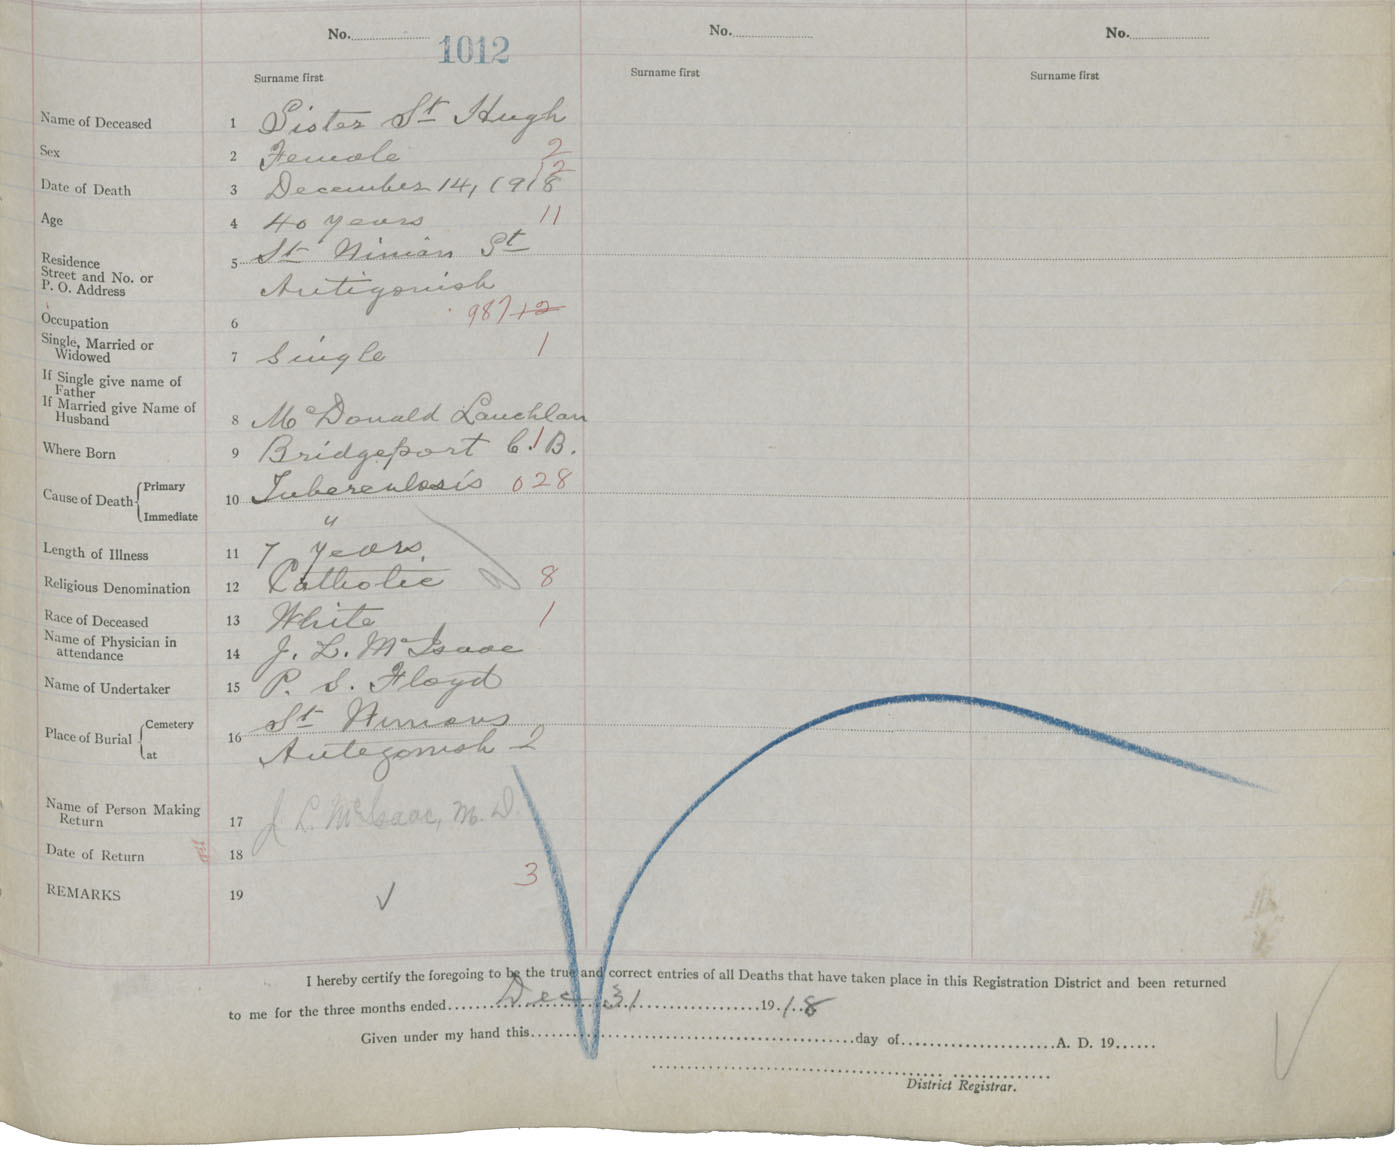 No. No. No.
1012
Surname first Surname first Surname first
Name of Deceased 1 Sister St Hugh
Sex 2 Female 2
Date of Death 3 December 14, 1918 12
Age 4 40 years 11
Residence
Street and No. or
P. O. Address
5 St Ninian St
Antigonish
Occupation 6 987+2
Single, Married or
Widowed 7 Single 1
If Single give name of
Father
If Married give Name of
Husband 8 McDonald Lauchlan
Where Born 9 Bridgeport C. B. 1
Cause of Death Primary 10 Tuberculosis 028
Immediate "
Length of Illness 11 7 years
Religious Denomination 12 Catholic 8
Race of Deceased 13 White 1
Name of Physician in
attendance 14 J. L. McIsaac
Name of Undertaker 15 P. S. Floyd
Place of Burial Cemetery 16 St Ninians
at Antegonish 2
Name of Person Making
Return 17 J. L. McIsaac, M. D.
Date of Return 18
3
REMARKS 19
I hereby certify the foregoing to be the true and correct entries of all Deaths that have taken place in this Registration District and been returned
to me for the three months ended Dec 31 1918
Given under my hand this day of A. D. 19
District Registrar.